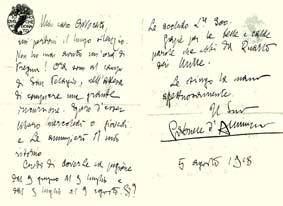 Mio caro Gilberto,
mi perdoni il lungo silenzio.
Non ho mai avuto un'ora di
tregua! Ora sono al campo
di San Pelagio, nell'attesa
di compiere una grande
incursione. Spero d'esser
libero mercoledì o giovedì.
e La avvertirò al mio
ritorno.
Credo di doverLe la pigione
dal 9 giugno al 9 luglio e
dal 9 luglio al 9 agosto. Sì?
Le accludo L. 200.
Grazie per le belle e calde
parole che ebbi da Quarto
dei Mille.
Le stringo la mano
affettuosamente.
Il Suo
Gabriele d'Annunzio
5 agosto 1918